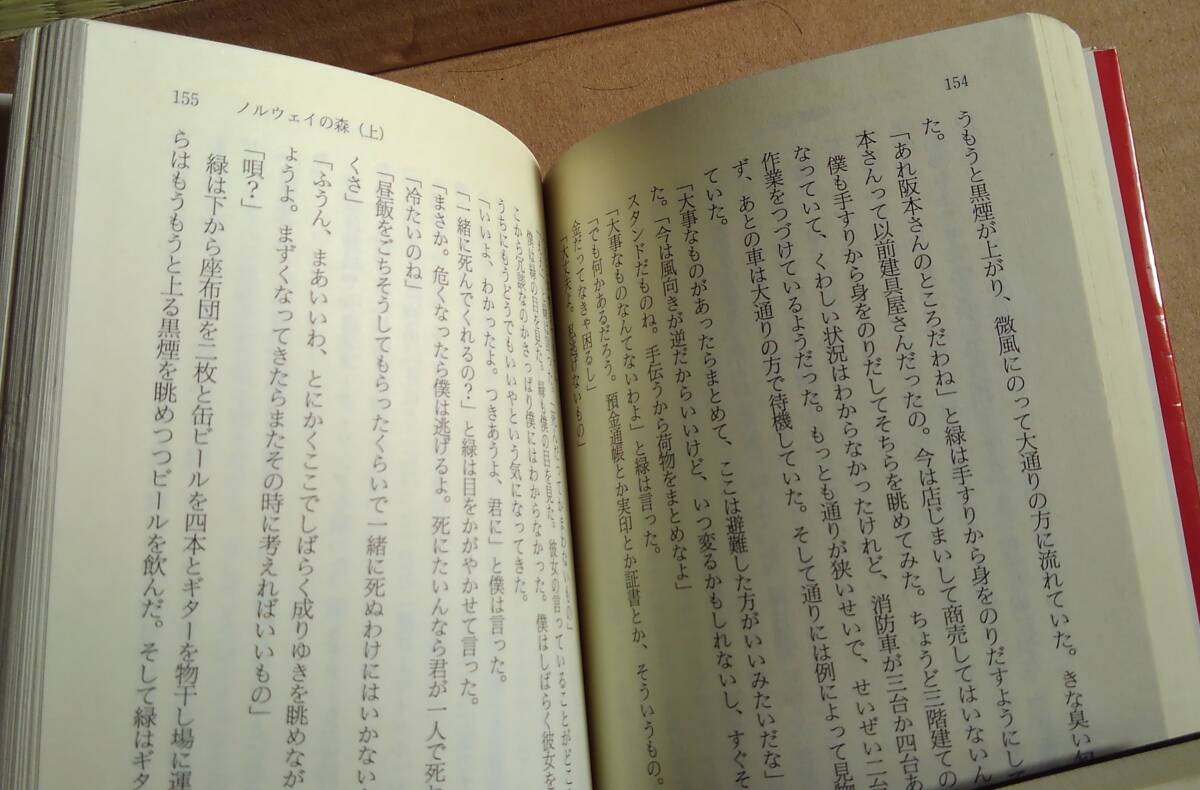 154
うもうと黒煙が上がり、微風にのって大通りの方に流れていた。きな臭い
た。
「あれ阪本さんのところだわね」と緑は手すりから身をのりだすようにして
本さんって以前建具屋さんだったの。今は店じまいして商売してはいないん
僕も手すりから身をのりだしてそちらを眺めてみた。ちょうど三階建ての
なっていて、くわしい状況はわからなかったけれど、消防車が三台か四台あ
作業をつづけているようだった。もっとも通りが狭いせいで、せいぜい二台
ず、あとの車は大通りの方で待機していた。そして通りには例によって見物
ていた。
「大事なものがあったらまとめて、ここは避難した方がいいみたいだな」
た。「今は風向きが逆だからいいけど、いつ変るかもしれないし、すぐそ
スタンドだものね。手伝うから荷物をまとめなよ」
「大事なものなんてないわよ」と緑は言った。
「でも何かあるだろう。預金通帳とか実印とか証書とか、そういうもの。
金だってなきゃ困るし」
「大丈夫よ。私逃げないもの」
155 ノルウェイの森（上）
僕は緑の目を見た。緑も僕の目を見た。彼女の言っていることがどこ
こから冗談なのかさっぱり僕にはわからなかった。僕はしばらく彼女を
うちにもうどうでもいいやという気になってきた。
「いいよ、わかったよ。つきあうよ、君に」と僕は言った。
「一緒に死んでくれるの？」と緑は目をかがやかせて言った。
「まさか。危くなったら僕は逃げるよ。死にたいんなら君が一人で死
「冷たいのね」
「昼飯をごちそうしてもらったくらいで一緒に死ぬわけにはいかない
くさ」
「ふうん、まあいいわ、とにかくここでしばらく成りゆきを眺めなが
ようよ。まずくなってきたらまたその時に考えればいいもの」
「唄？」
緑は下から座布団を二枚と缶ビールを四本とギターを物干し場に運
らはもうもうと上る黒煙を眺めつつビールを飲んだ。そして緑はギタ